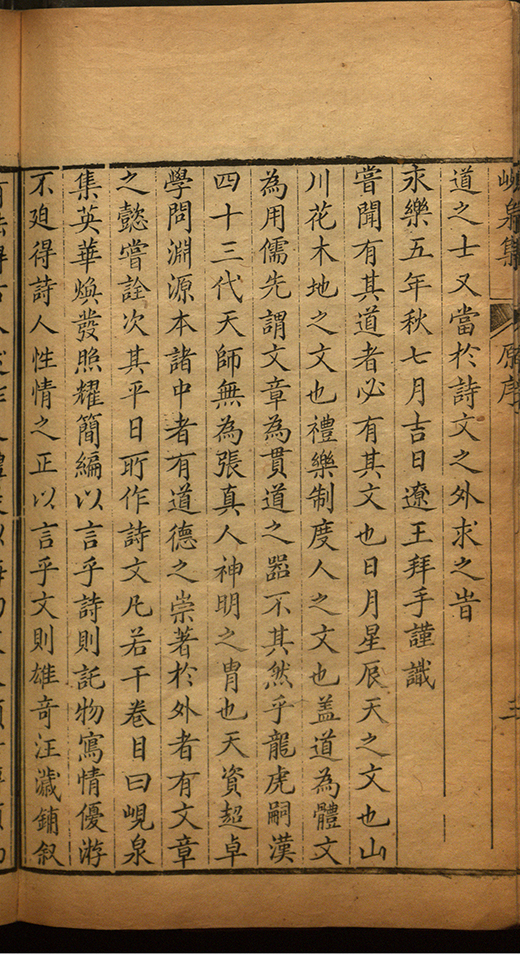 峴泉集 原序
道之士又當於詩文之外求之旹
永樂五年秋七月吉日遼王拜手謹識
嘗聞有其道者必有其文也日月星辰天之文也山
川花木地之文也禮樂制度人之文也盖道為體文
為用儒先謂文章為貫道之器不其然乎龍虎嗣漢
四十三代天師無為張真人神明之胄也天資超卓
學問淵源本諸中者有道德之崇著於外者有文章
之懿嘗詮次其平日所作詩文凡若干卷目曰峴泉
集英華煥發照耀簡編以言乎詩則託物寫情優游
不廹得詩人性情之正以言乎文則雄竒汪濊鋪叙